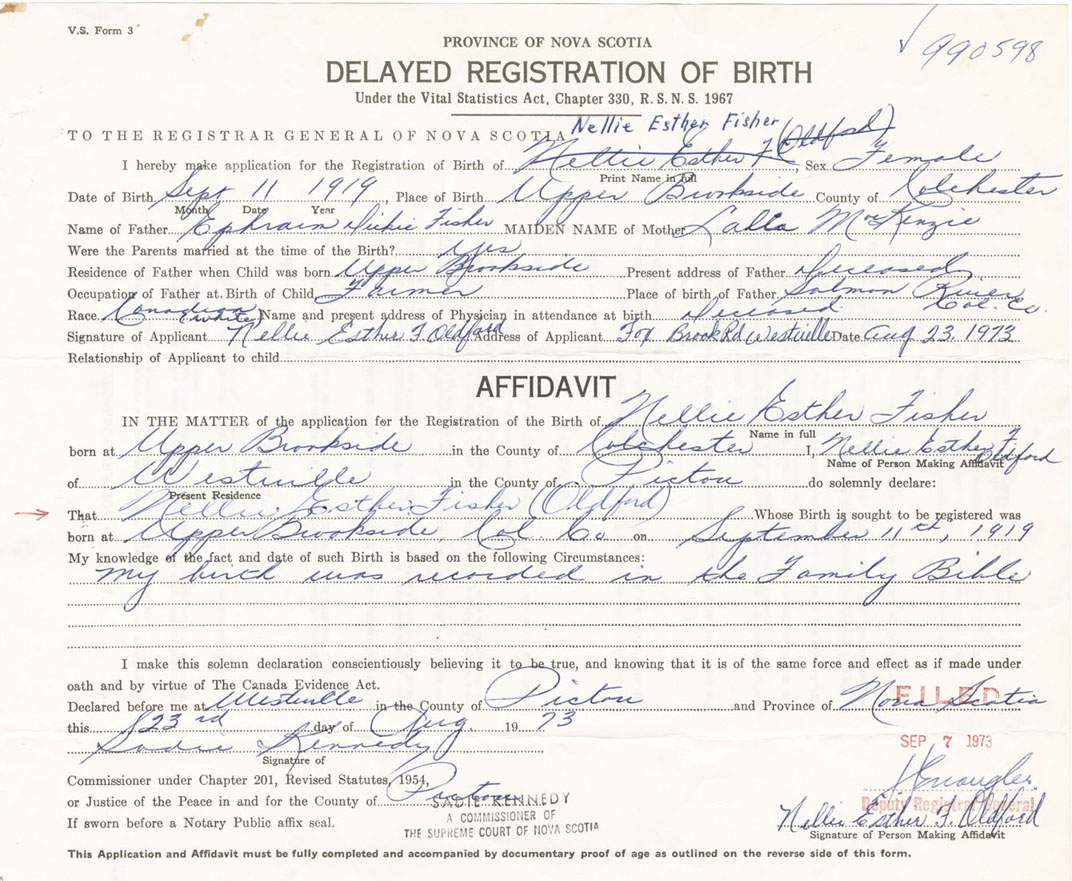 V.S. Form 3
990598
PROVINCE OF NOVA SCOTIA
DELAYED REGISTRATION OF BIRTH
Under the Vital Statistics Act, Chapter 330, R. S. N. S. 1967
Nellie Esther Fisher
TO THE REGISTRAR GENERAL OF NOVA SCOTIA
I hereby make application for the Registration of Birth of Nellie Esther F (Oldford), Sex Female
Print Name in full
Date of Birth Sept 11 1919, Place of Birth Upper Brookside County of Colchester
Month Date Year
Name of Father Ephraim Dickie Fisher MAIDEN NAME of Mother Lalla MacKenzie
Were the Parents married at the time of the Birth? Yes
Residence of Father when Child was born Upper Brookside Present address of Father Deceased
Occupation of Father at Birth of Child Farmer Place of birth of Father Salmon River Col. Co.
Race Canadian (white) Name and present address of Physician in attendance at birth Deceased
Signature of Applicant Nellie Esther F Oldford Address of Applicant Fox Brook Rd Westville Date Aug 23, 1973
Relationship of Applicant to child
AFFIDAVIT
IN THE MATTER of the application for the Registration of the Birth of Nellie Esther Fisher
Name in full
born at Upper Brookside in the County of Colchester I, Nellie Esther F Oldford
Name of Person Making Affidavit
of Westville in the County of Pictou do solemnly declare:
Present Residence
That Nellie Esther Fisher (Oldford) Whose Birth is sought to be registered was
born at Upper Brookside, Col. Co on September 11th, 1919
My knowledge of the fact and date of such Birth is based on the following Circumstances:
My birth was recorded in the Family Bible
I make this solemn declaration conscientiously believing it to be true, and knowing that it is of the same force and effect as if made under
oath and by virtue of The Canada Evidence Act.
Declared before me at Westville in the County of Pictou and Province of Nova Scotia
FILED
this 23rd day of Aug. 19 73
SEP 7 1973
Sadie Kennedy
Signature of
Commissioner under Chapter 201, Revised Statutes, 1954,
or Justice of the Peace in and for the County of Pictou
SADIE KENNEDY
A COMMISSIONER OF
THE SUPREME COURT OF NOVA SCOTIA
If sworn before a Notary Public affix seal.
Deputy Registrar General
Nellie Esther F. Oldford
Signature of Person Making Affidavit
This Application and Affidavit must be fully completed and accompanied by documentary proof of age as outlined on the reverse side of this form.